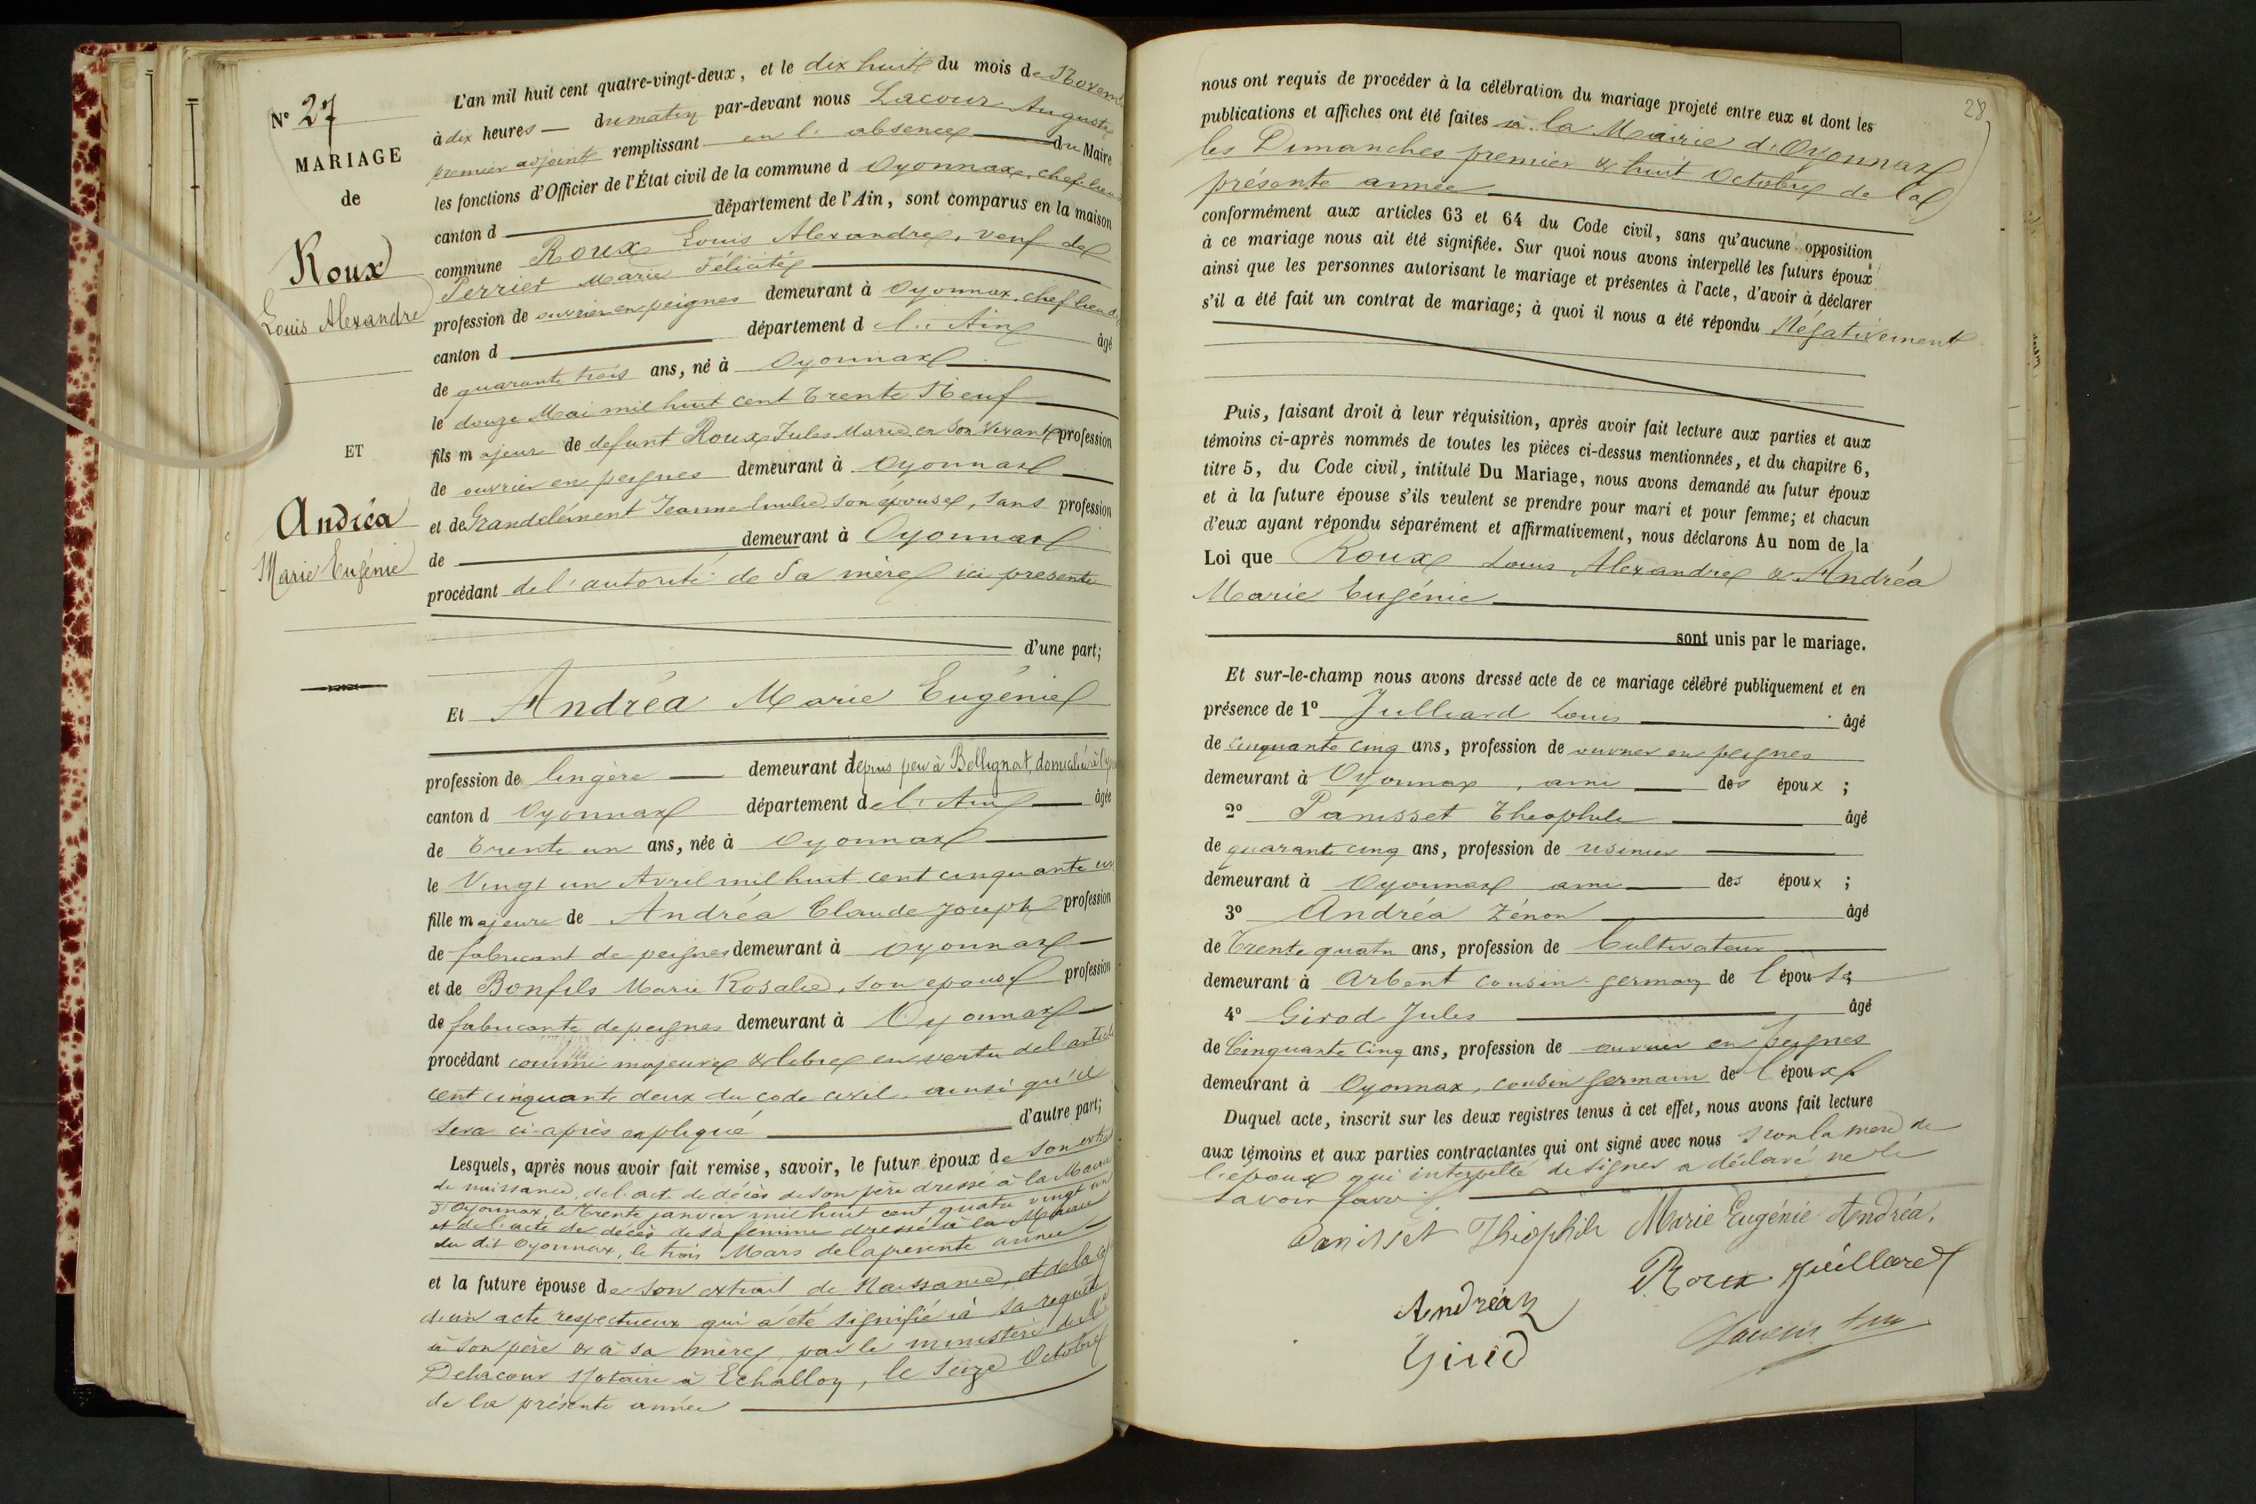 N° 27
MARIAGE
de
Roux
Louis Alexandre
ET
Andréa
Marie Eugénie
L'an mil huit cent quatre-vingt-deux, et le dix huit du mois de Novemb
à dix heures — du matin par-devant nous Lacour Auguste
premier adjoint remplissant en l'absence du Maire
les fonctions d'Officier de l'État civil de la commune d Oyonnax, chef-lieu
canton d département de l'Ain, sont comparus en la maison
commune Roux Louis Alexandre, veuf de
Perrier Marie Félicité
profession de ouvrier en peignes demeurant à Oyonnax, chef lieu de
canton d département d l'Ain âgé
de quarante trois ans, né à Oyonnax
le douze Mai mil huit cent trente Neuf
fils majeur de defunt Roux Jules Marie, en son vivant profession
de ouvrier en peignes demeurant à Oyonnax
et de Grandclément Jeanne son épouse, sans profession
de demeurant à Oyonnax
procédant de l'autorité de sa mère ici présente
d'une part;
Et Andréa Marie Eugénie
profession de lingère demeurant depuis peu à Bellignat, domiciliée à Oyon
canton d Oyonnax département de l'Ain âgée
de trente un ans, née à Oyonnax
le Vingt un Avril mil huit cent cinquante un
fille majeure de Andréa Claude Joseph profession
de fabricant de peignes demeurant à Oyonnax
et de Bonfils Marie Rosalie, son épouse profession
de fabricante de peignes demeurant à Oyonnax
procédant comme majeure & libre en vertu de l'article
cent cinquante deux du code civil, ainsi qu'il
sera ci-après expliqué d'autre part;
Lesquels, après nous avoir fait remise, savoir, le futur époux de son extrait
de naissance, de l'acte de décès de son père dressé à la Mairie
d'Oyonnax, le trente janvier mil huit cent quatre vingt un
et de l'acte de décès de sa femme dressé à la Mairie
du dit Oyonnax, le trois Mars de la présente année
et la future épouse de son extrait de Naissance, et de la
d'un acte respectueux qui a été signifié à sa requête
à son père & à sa mère, par le ministère de Me
Delacour Notaire à Echallon, le seize Octobre
de la présente année
28
nous ont requis de procéder à la célébration du mariage projeté entre eux et dont les
publications et affiches ont été faites à la Mairie d'Oyonnax
les Dimanches premier & huit Octobre de la
présente année
conformément aux articles 63 et 64 du Code civil, sans qu'aucune opposition
à ce mariage nous ait été signifiée. Sur quoi nous avons interpellé les futurs époux
ainsi que les personnes autorisant le mariage et présentes à l'acte, d'avoir à déclarer
s'il a été fait un contrat de mariage; à quoi il nous a été répondu Négativement
Puis, faisant droit à leur réquisition, après avoir fait lecture aux parties et aux
témoins ci-après nommés de toutes les pièces ci-dessus mentionnées, et du chapitre 6,
titre 5, du Code civil, intitulé Du Mariage, nous avons demandé au futur époux
et à la future épouse s'ils veulent se prendre pour mari et pour femme; et chacun
d'eux ayant répondu séparément et affirmativement, nous déclarons Au nom de la
Loi que Roux Louis Alexandre & Andréa
Marie Eugénie
sont unis par le mariage.
Et sur-le-champ nous avons dressé acte de ce mariage célébré publiquement et en
présence de 1° Julliard Louis âgé
de cinquante cinq ans, profession de ouvrier en peignes
demeurant à Oyonnax, ami des époux ;
2° Panisset Théophile âgé
de quarante cinq ans, profession de usinier
demeurant à Oyonnax ami des époux ;
3° Andréa Zénon âgé
de Trente quatre ans, profession de Cultivateur
demeurant à Arbent cousin germain de l'épouse
4° Girod Jules âgé
de Cinquante Cinq ans, profession de ouvrier en peignes
demeurant à Oyonnax, cousin germain de l'époux
Duquel acte, inscrit sur les deux registres tenus à cet effet, nous avons fait lecture
aux témoins et aux parties contractantes qui ont signé avec nous non la mère de
l'époux qui interpellé de signer a déclaré ne le
savoir faire
Panisset Théophile Marie Eugénie Andréa
Roux Juillard
Andréa Z
Girod